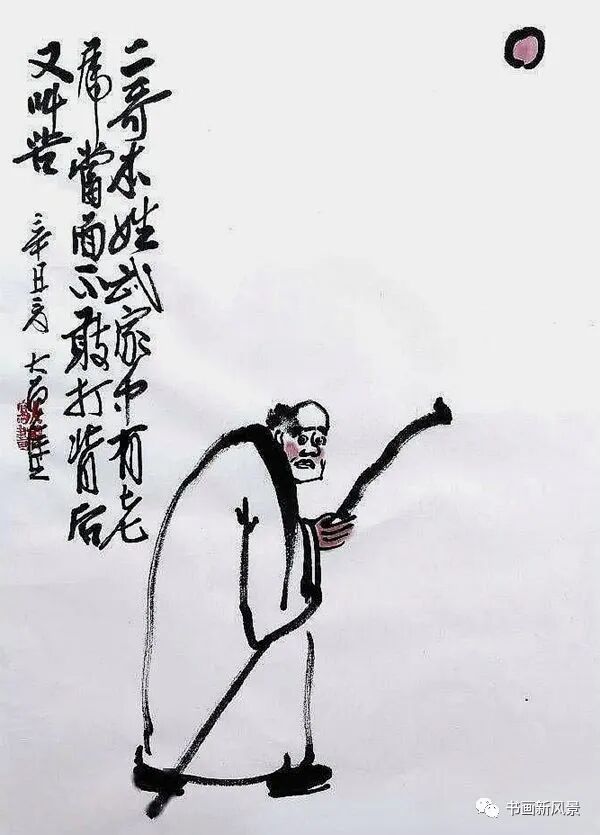 二哥本姓武家中有老
虎當面不敢打背后
又叫苦
辛丑
书画新风景